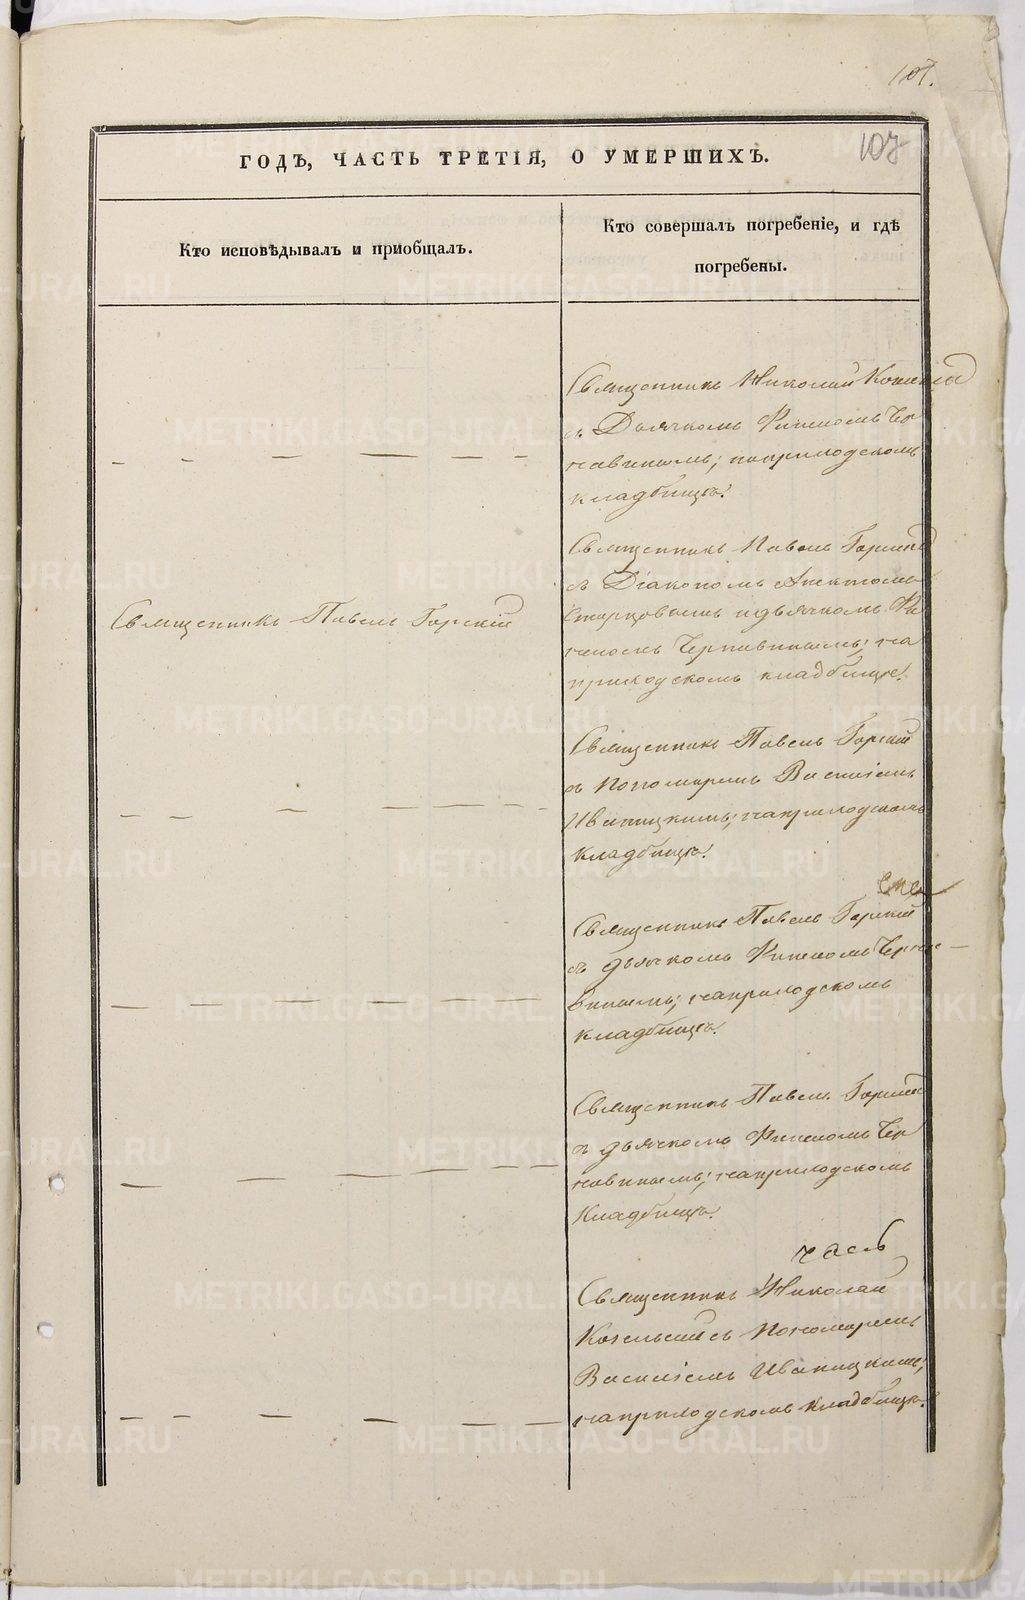 107.
107
ГОДЪ, ЧАСТЬ ТРЕТІЯ, О УМЕРШИХЪ.
Кто исповѣдывалъ и приобщалъ.
Кто совершалъ погребеніе, и гдѣ
погребены.
Священникъ Николай
съ Дьячкомъ Финеномъ Чер
навинымъ; наприходскомъ
кладбищѣ.
Священникъ Павелъ Горскій
съ Діакономъ
Старцовымъ идьячкомъ Фи
неномъ Чернавинымъ; на
приходскомъ кладбищѣ.
Священникъ Павелъ Горскій
Священникъ Павелъ Горскій
съ Пономаремъ Василіемъ
Иваницкимъ; наприходскомъ
кладбищѣ.
Священникъ Павелъ Горскій
съ дьячкомъ Финеномъ Черна-
винымъ; наприходскомъ
кладбищѣ.
Священникъ Павелъ Горскій
съ дьячкомъ Финеномъ Чер
навинымъ; наприходскомъ
кладбищѣ.
часть
Священникъ Николай
съ Пономаремъ
Василіемъ Иваницкимъ;
наприходскомъ кладбищѣ.
METRIKI.GASO-URAL.RU